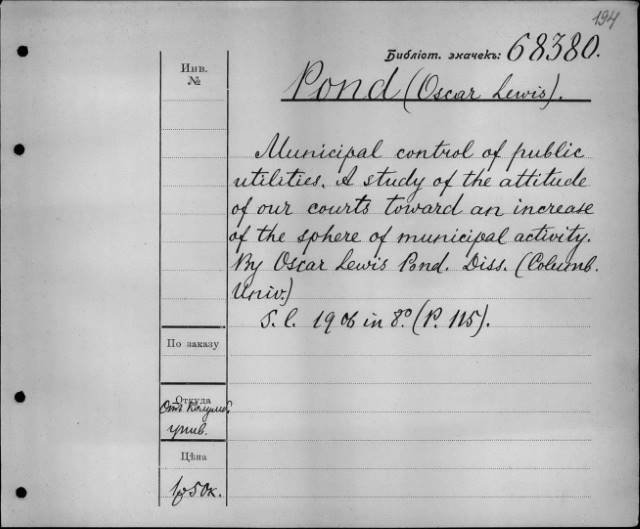 194
Библіот. значекъ: 68380.
Инв.
№
Pond (Oscar Lewis).
Municipal control of public
utilities. A study of the attitude
of our courts toward an increase
of the sphere of municipal activity.
By Oscar Lewis Pond. Diss. (Columb.
Univ.)
S. l. 1906 in 8° (P. 115).
По заказу
Откуда
Отъ Колумб.
унив.
Цѣна
1р50к.